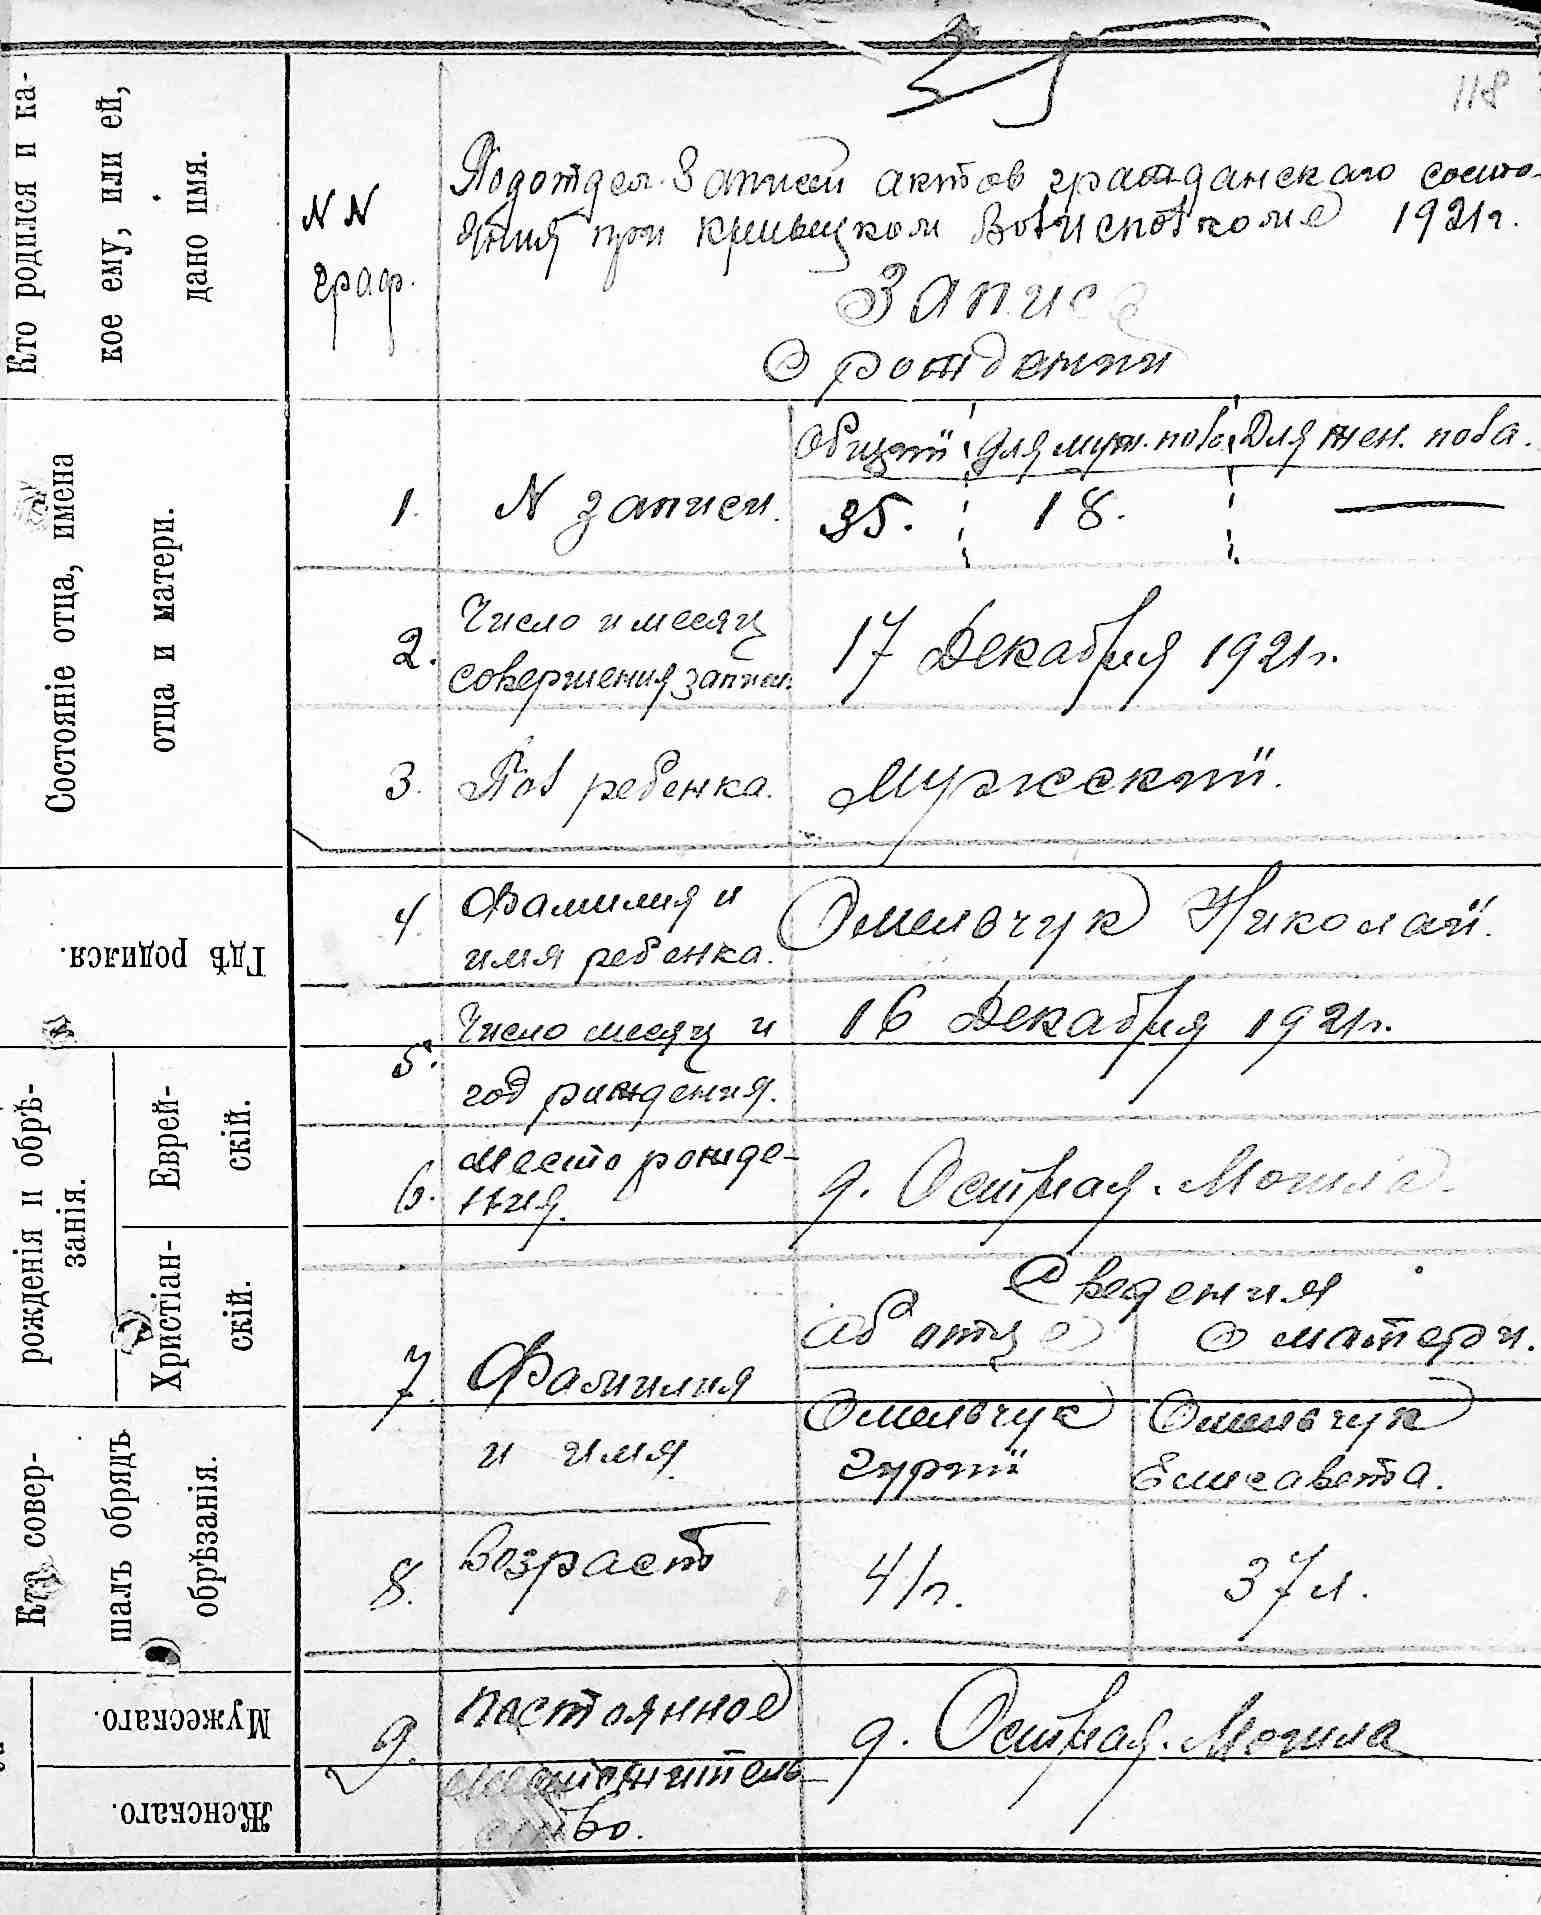 118
Кто родился и ка-
кое ему, или ей,
дано имя.
Состояніе отца, имена
отца и матери.
Гдѣ родился.
рожденія и обрѣ-
занія.
Еврей-
скій.
Христіан-
скій.
Кто совер-
шалъ обрядъ
обрѣзанія.
Мужескаго.
Женскаго.
N N
граф.
Подотдел Записи актов гражданскаго состо-
яния при Волисполкоме 1921 г.
Запись
О рождении
Общий Для муж. пола. Для жен. пола.
1. N записи. 35. 18. —
2. Число и месяц
совершения записи. 17 Декабря 1921 г.
3. Пол ребенка. Мужский.
4. Фамилия и
имя ребенка. Омельчук Николай.
5. Число месяц и
год рождения. 16 Декабря 1921 г.
6. Место рожде-
ния. д. Острая-Могила.
Сведения
Об отце О матери.
7. Фамилия
и имя Омельчук
Гурий Омельчук
Елисавета.
8. Возраст 41 г. 37 л.
9. Постоянное
местожитель-
ство. д. Острая-Могила